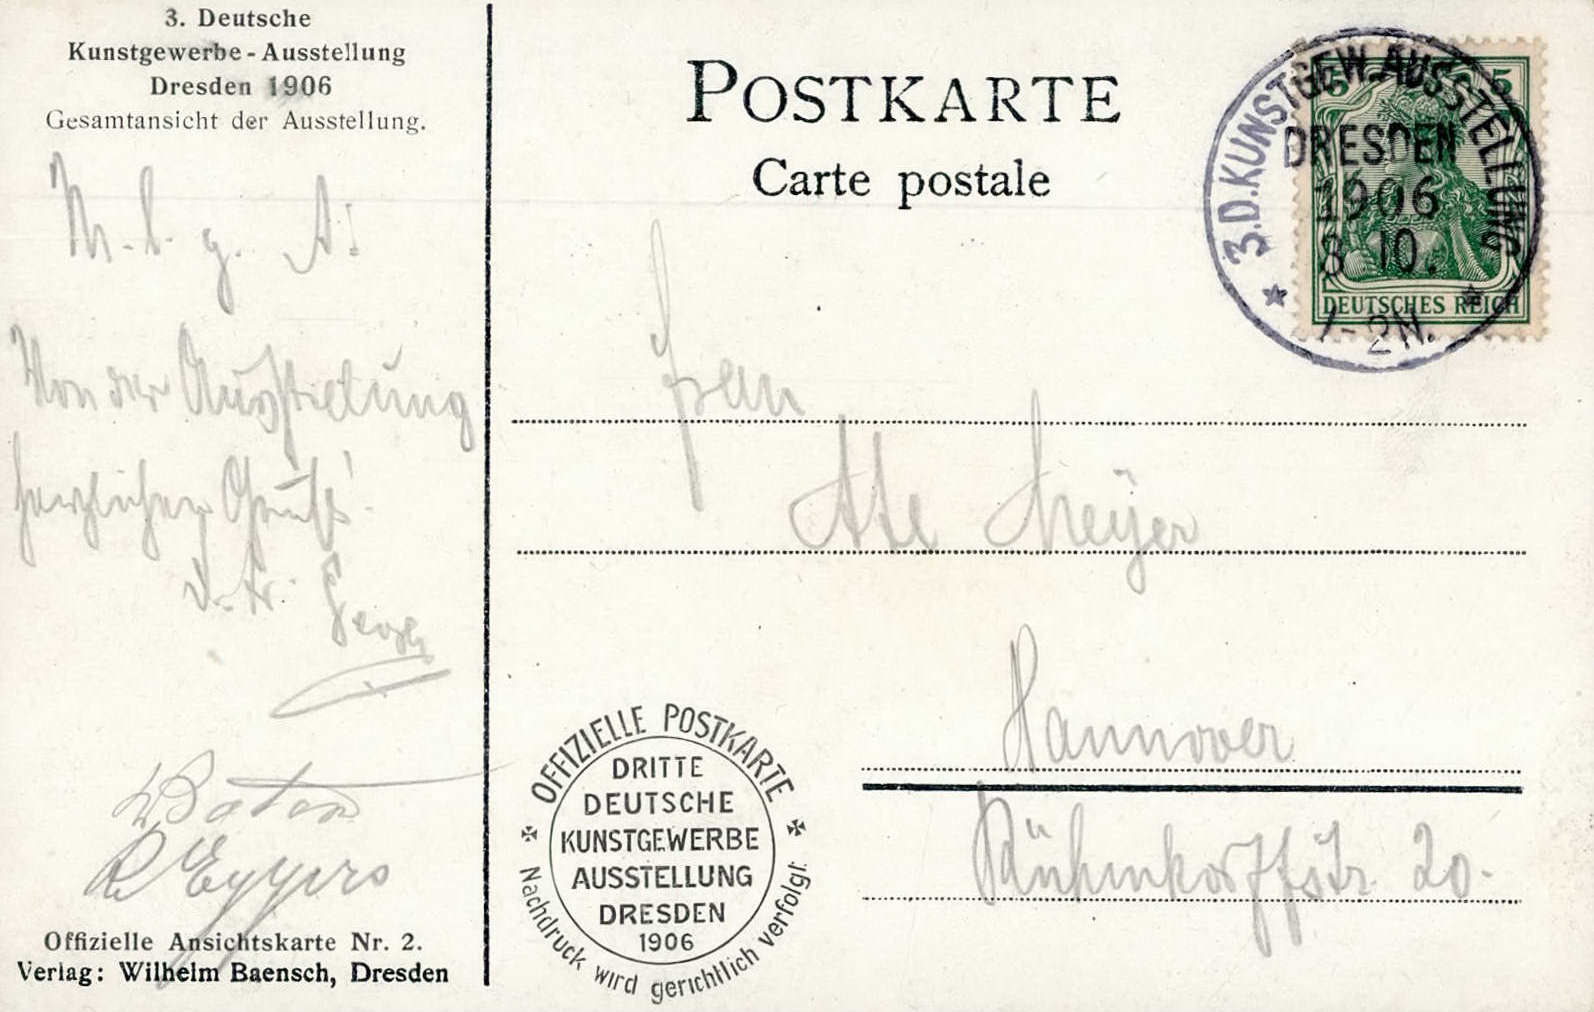 3. Deutsche
Kunstgewerbe-Ausstellung
Dresden 1906
Gesamtansicht der Ausstellung.
M. l. g. A!
Von der Ausstellung
herzlichen Gruß!
Eggers
Offizielle Ansichtskarte Nr. 2.
Verlag: Wilhelm Baensch, Dresden
POSTKARTE
Carte postale
3.D.KUNSTGEW.AUSSTELLUNG
DRESDEN
1906
8 10.
1-2N.
5 5
DEUTSCHES REICH
Frau
Meÿer
Hannover
Rühmkorffstr 20.
OFFIZIELLE POSTKARTE
DRITTE
DEUTSCHE
KUNSTGEWERBE
AUSSTELLUNG
DRESDEN
1906
Nachdruck wird gerichtlich verfolgt.